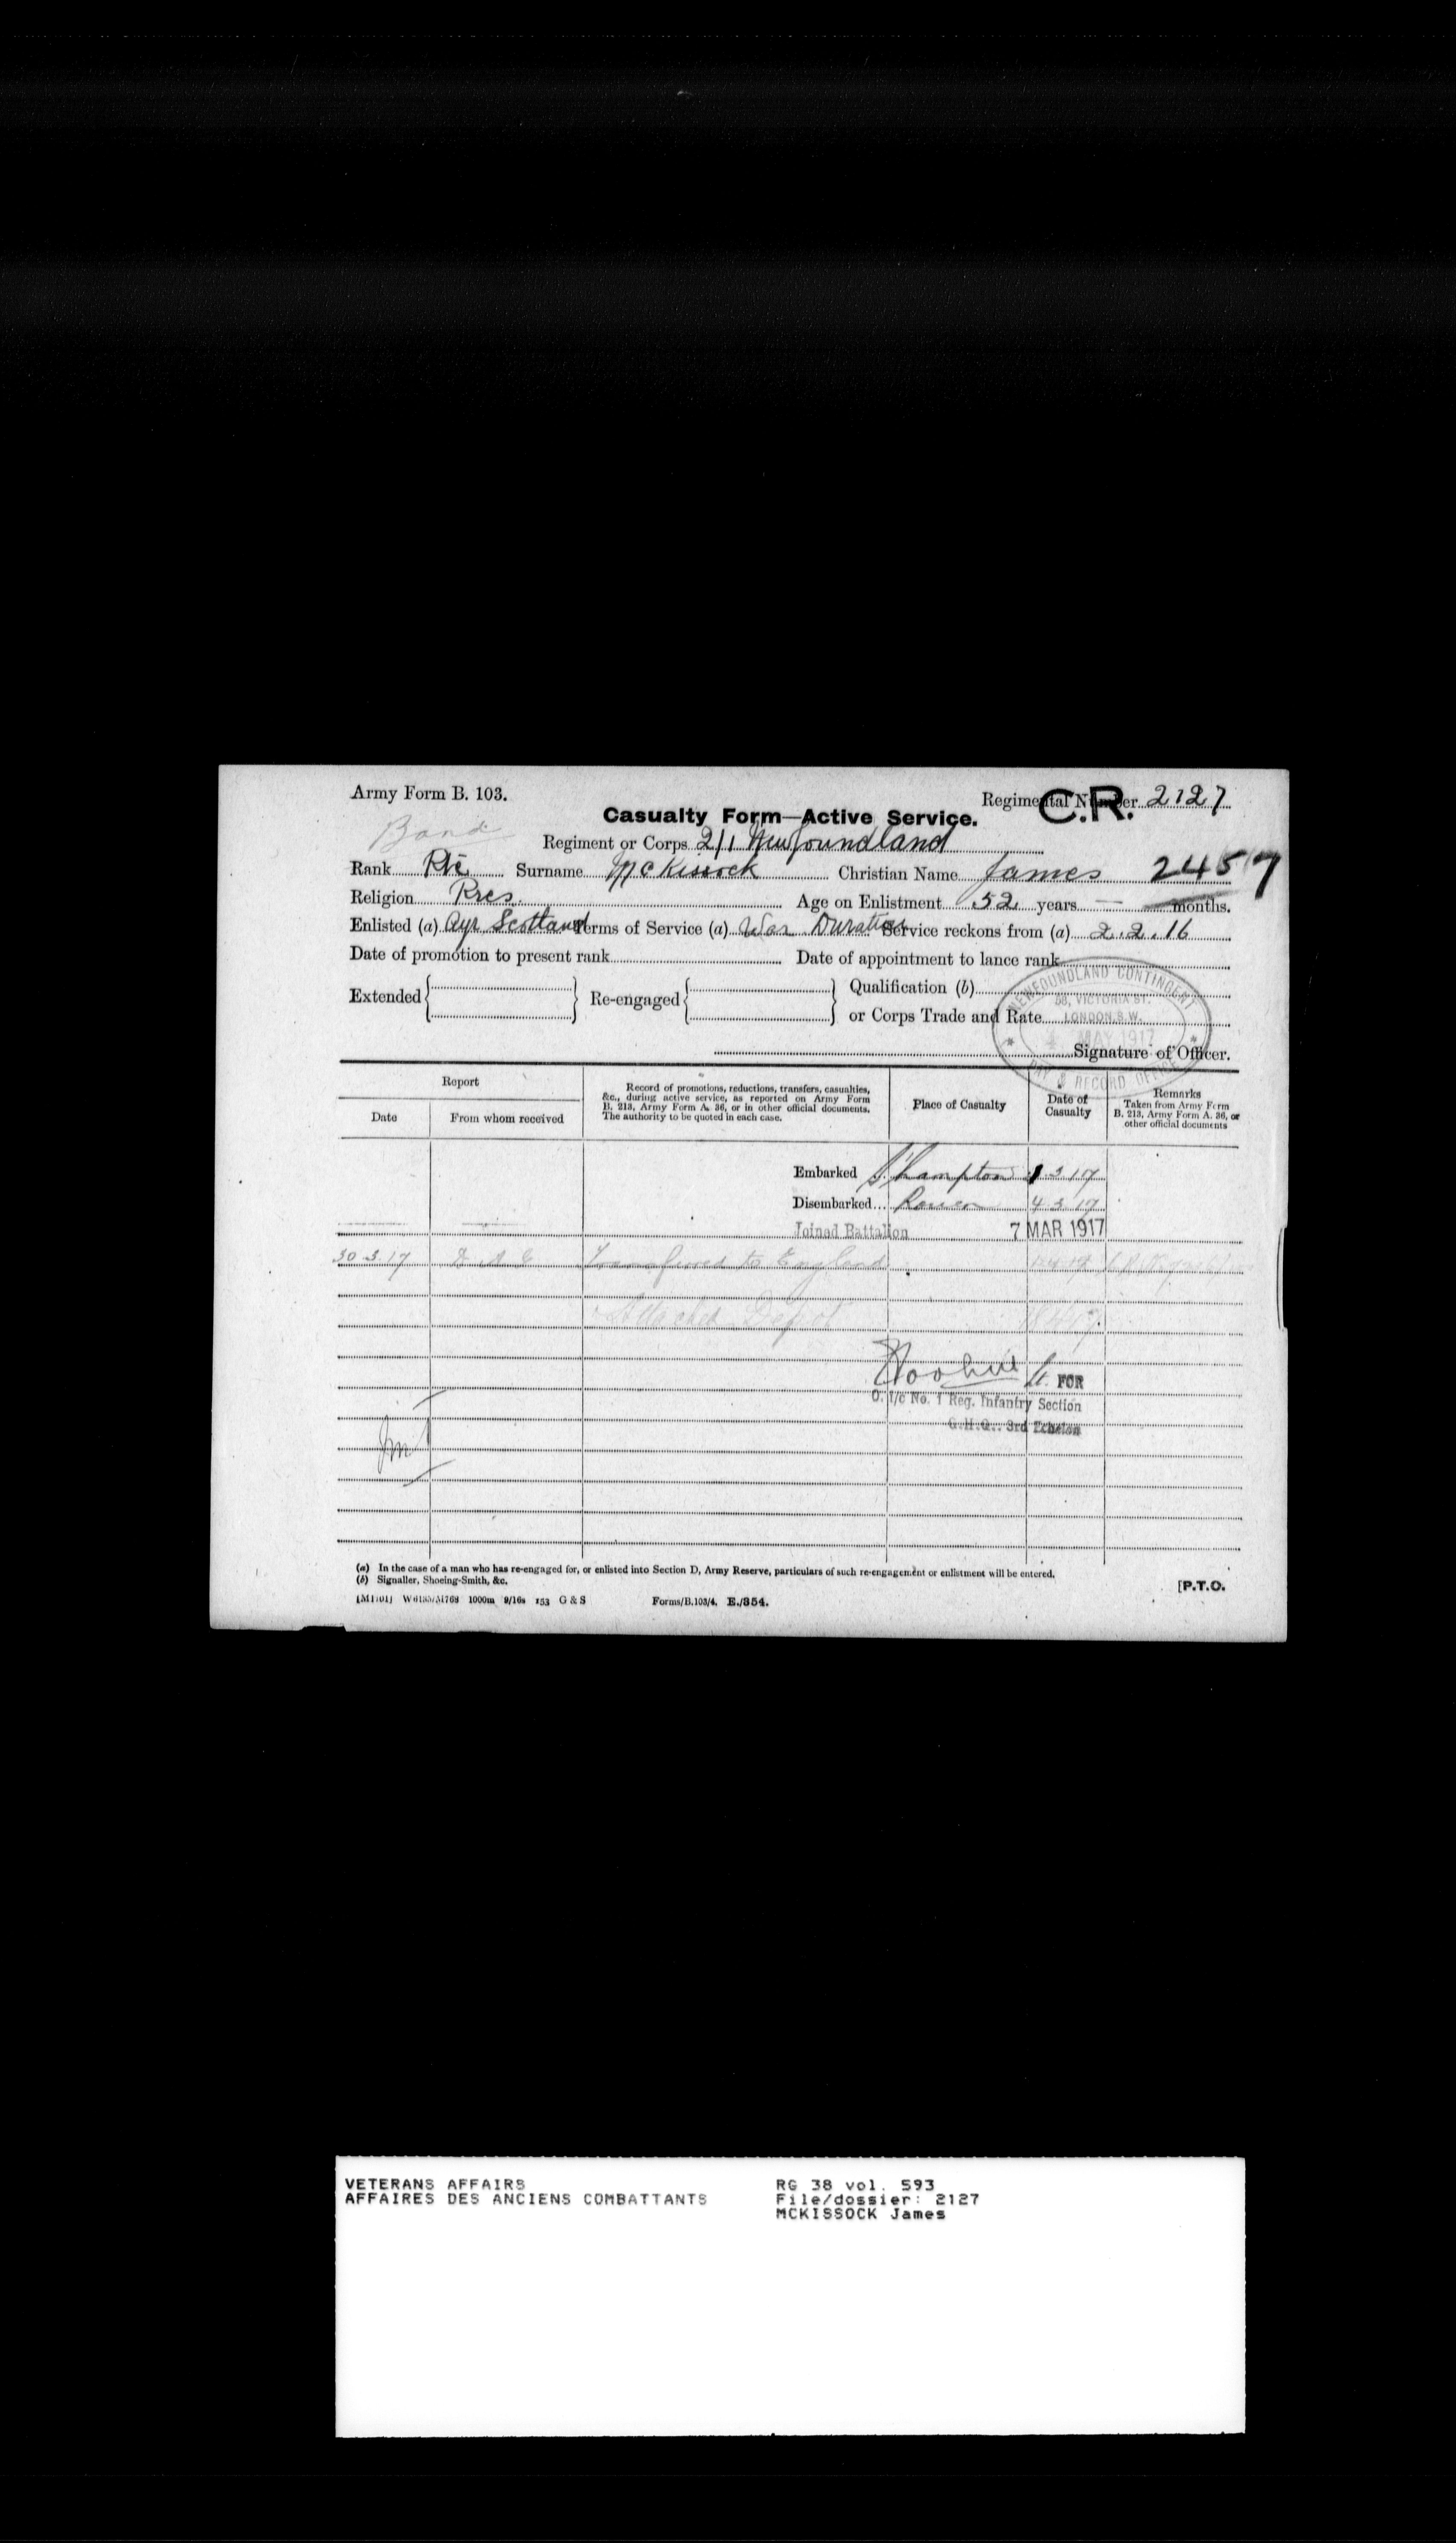 Army Form B. 103.
Regimental Number 2127
C.R.
Casualty Form—Active Service.
Band
Regiment or Corps 2/1 Newfoundland
Rank Pte Surname McKissock Christian Name James 2457
Religion Pres. Age on Enlistment 52 years — months.
Enlisted (a) Ayr Scotland Terms of Service (a) War Duration Service reckons from (a) 2.2.16
Date of promotion to present rank Date of appointment to lance rank
Extended Re-engaged Qualification (b)
or Corps Trade and Rate
NEWFOUNDLAND CONTINGENT
58, VICTORIA ST.
LONDON, S.W.
4 MAY 1917
PAY & RECORD OFFICE
Signature of Officer.
Report
Date
From whom received
Record of promotions, reductions, transfers, casualties,
&c., during active service, as reported on Army Form
B. 213, Army Form A. 36, or in other official documents.
The authority to be quoted in each case.
Place of Casualty
Date of
Casualty
Remarks
Taken from Army Form
B. 213, Army Form A. 36, or
other official documents
Embarked S'hampton 1 3 17
Disembarked... Rouen 4 3 17
Joined Battalion 7 MAR 1917
30 3.17 Transferred to England
Attached Depot
Lt. FOR
O. i/c No. 1 Reg. Infantry Section
G.H.Q., 3rd Echelon
(a) In the case of a man who has re-engaged for, or enlisted into Section D, Army Reserve, particulars of such re-engagement or enlistment will be entered.
(b) Signaller, Shoeing-Smith, &c.
[P.T.O.
1000m 9/16s 153 G & S Forms/B.103/4. E./354.
VETERANS AFFAIRS RG 38 vol. 593
AFFAIRES DES ANCIENS COMBATTANTS File/dossier: 2127
MCKISSOCK James